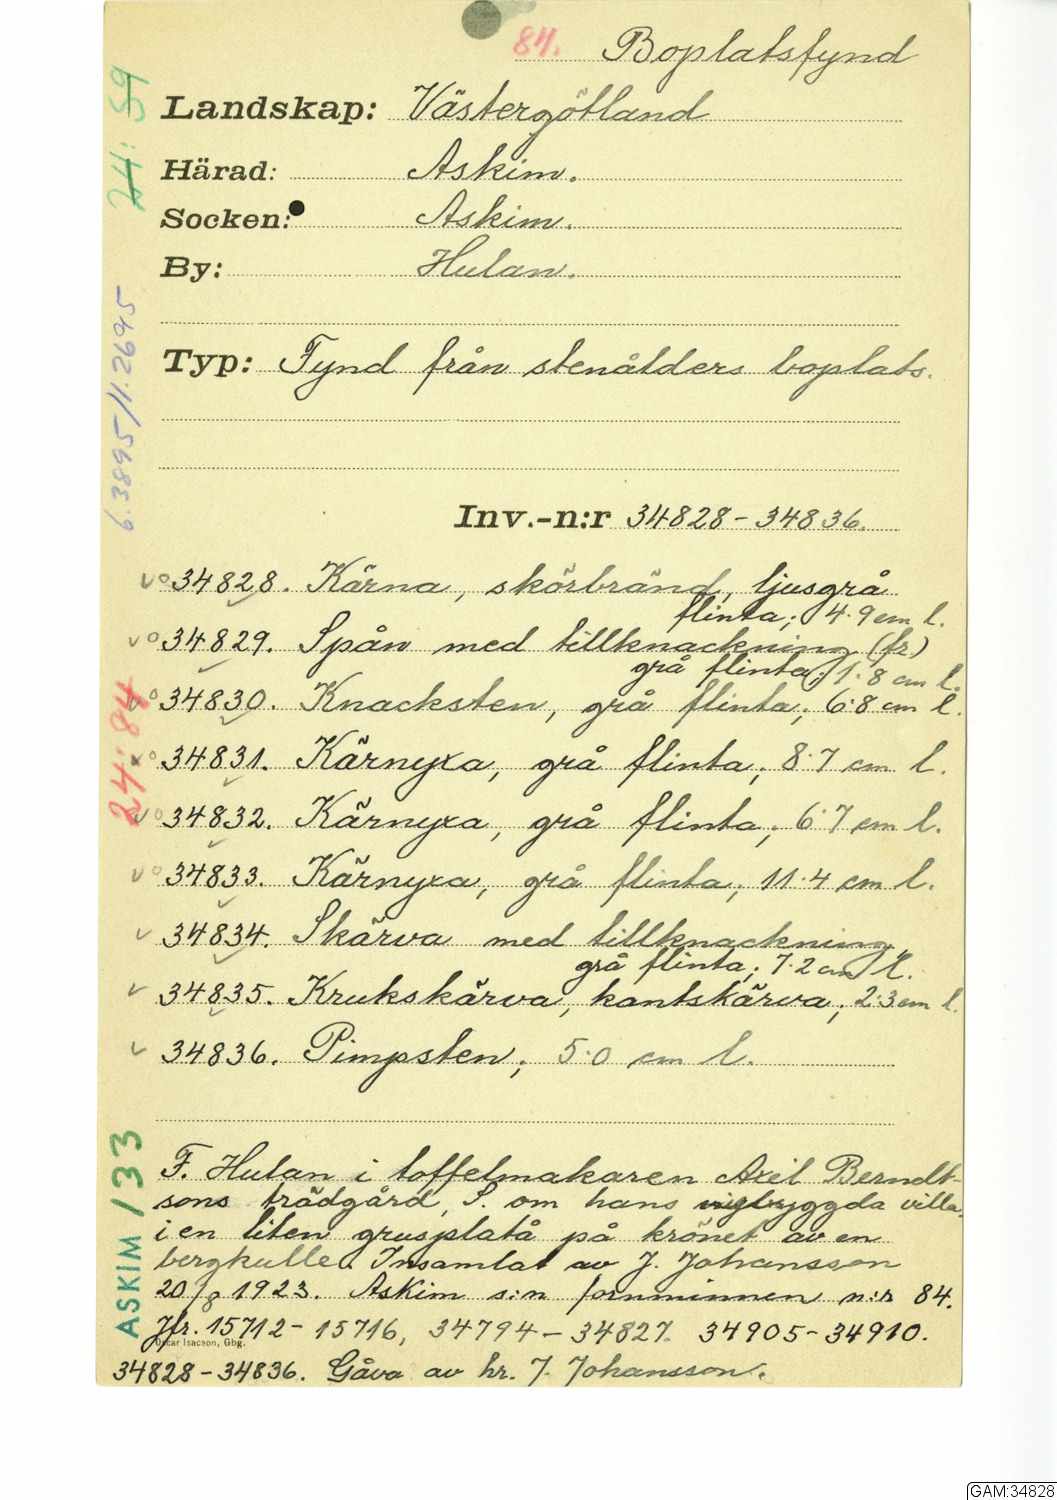 84. Boplatsfynd
Landskap: Västergötland
Härad: Askim.
Socken: Askim.
By: Hulan.
Typ: Fynd från stenålders boplats.
Inv.-n:r 34828-34836.
34828. Kärna, skörbränd, ljusgrå
flinta; 4.9 cm l.
34829. Spån med tillknackning (fr)
grå flinta; 1.8 cm l.
34830. Knacksten, grå flinta; 6.8 cm l.
34831. Kärnyxa, grå flinta; 8.7 cm l.
34832. Kärnyxa, grå flinta; 6.7 cm l.
34833. Kärnyxa, grå flinta; 11.4 cm l.
34834. Skärva med tillknackning,
grå flinta; 7.2 cm l.
34835. Krukskärva, kantskärva; 2.3 cm l.
34836. Pimpsten; 5.0 cm l.
F. Hulan i toffelmakaren Axel Berndt-
sons trädgård, S. om hans villa,
i en liten grusplatå på krönet av en
bergkulle. Insamlat av J. Johansson
20/8 1923. Askim s:n fornminnen n:r 84.
Jfr. 15712-15716, 34794-34827. 34905-34910.
Oscar Isacson, Gbg.
34828-34836. Gåva av hr. J. Johansson.
24:59
6.3895/11.2695
24:84
ASKIM 133
GAM:34828